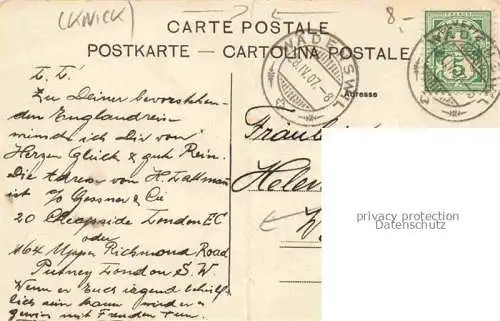 (KNICK)
8.-
CARTE POSTALE
POSTKARTE - CARTOLINA POSTALE
WÄDENSWIL
IV.07.-8
WÄDENSWIL
5
Adresse
L. L.
Zu Deiner bevorstehen-
den Englandreise
wünsche ich Dir von
Herzen Glück & gute Reise.
Die Adresse von H.
ist c/o Gessner & Cie
20 Cheapside London EC
oder
164 Upper Richmond Road
Putney London S.W.
Wenn er Euch irgend behülf-
lich sein kann wird er es
gewiss mit Freuden tun.
Fräulein
Helen
privacy protection
Datenschutz